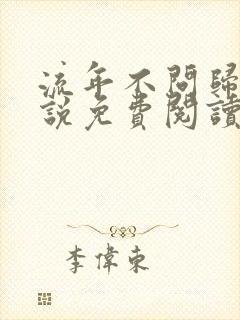 流年不問歸
說免費閱讀
李偉東